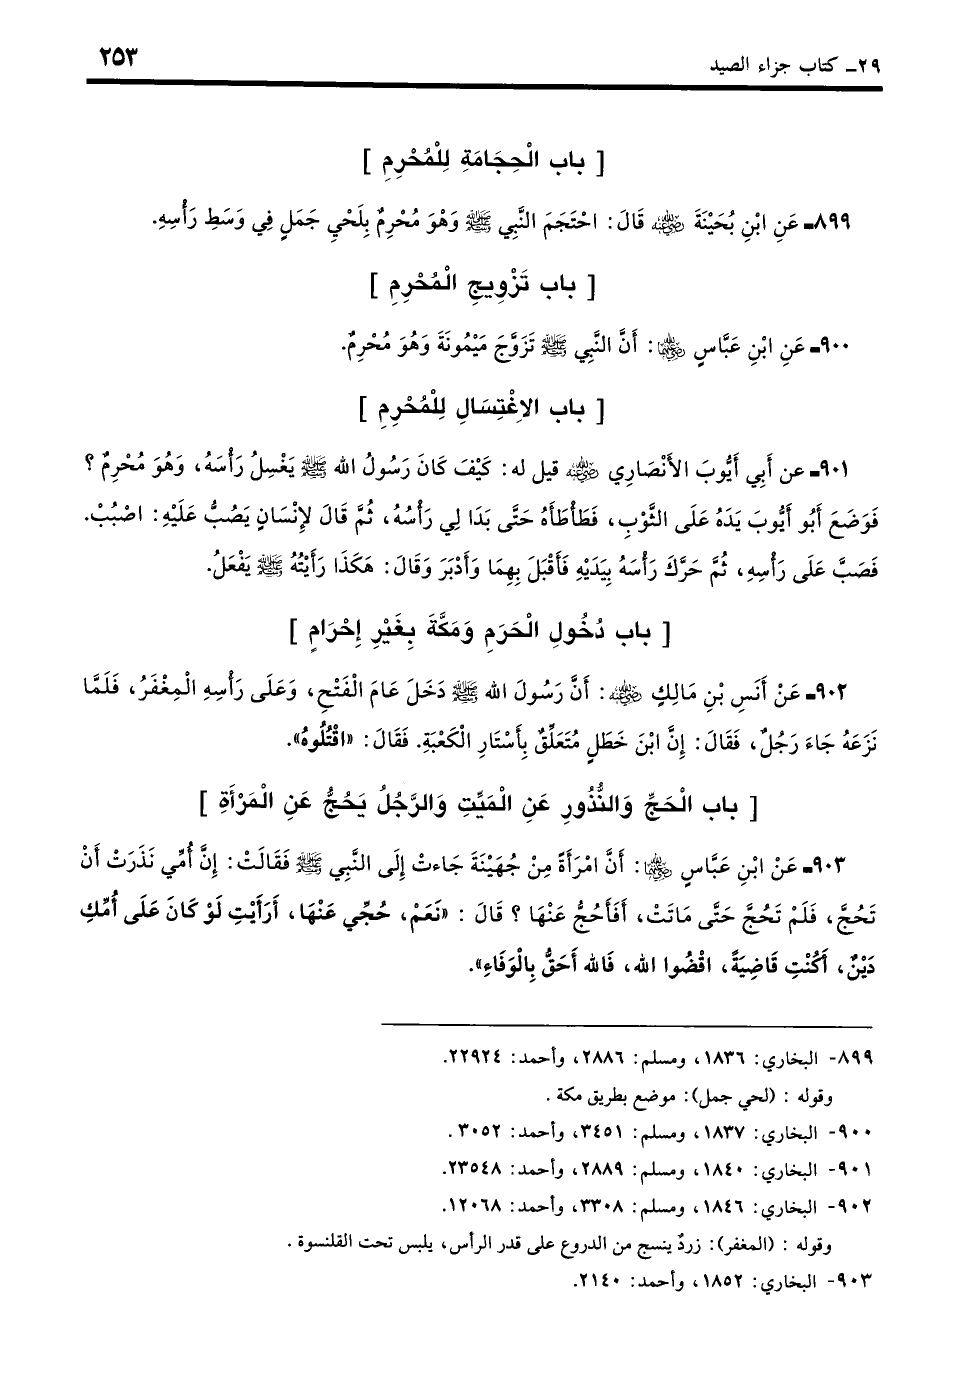 ٢٩ـ كتاب جزاء الصيد
٢٥٣
[ باب الْحِجَامَةِ لِلْمُحْرِمِ ]
٨٩٩ـ عَنِ ابْنِ بُحَيْنَةَ ﵁ قَالَ: احْتَجَمَ النَّبِي ﷺ وَهْوَ مُحْرِمٌ بِلَحْيِ جَمَلٍ فِي وَسَطِ رَأْسِهِ.
[ باب تَزْوِيجِ الْمُحْرِمِ ]
٩٠٠ـ عَنِ ابْنِ عَبَّاسٍ ﵄: أَنَّ النَّبِي ﷺ تَزَوَّجَ مَيْمُونَةَ وَهُوَ مُحْرِمٌ.
[ باب الاِغْتِسَالِ لِلْمُحْرِمِ ]
٩٠١ـ عن أَبِي أَيُّوبَ الأَنْصَارِي ﵁ قيل له: كَيْفَ كَانَ رَسُولُ الله ﷺ يَغْسِلُ رَأْسَهُ، وَهُوَ مُحْرِمٌ ؟
فَوَضَعَ أَبُو أَيُّوبَ يَدَهُ عَلَى الثَّوْبِ، فَطَأْطَأَهُ حَتَّى بَدَا لِي رَأْسُهُ، ثُمَّ قَالَ لإِنْسَانٍ يَصُبُّ عَلَيْهِ: اصْبُبْ.
فَصَبَّ عَلَى رَأْسِهِ، ثُمَّ حَرَّكَ رَأْسَهُ بِيَدَيْهِ فَأَقْبَلَ بِهِمَا وَأَدْبَرَ وَقَالَ: هَكَذَا رَأَيْتُهُ ﷺ يَفْعَلُ.
[ باب دُخُولِ الْحَرَمِ وَمَكَّةَ بِغَيْرِ إِحْرَامٍ ]
٩٠٢ـ عَنْ أَنَسِ بْنِ مَالِكٍ ﵁: أَنَّ رَسُولَ الله ﷺ دَخَلَ عَامَ الْفَتْحِ، وَعَلَى رَأْسِهِ الْمِغْفَرُ، فَلَمَّا
نَزَعَهُ جَاءَ رَجُلٌ، فَقَالَ: إِنَّ ابْنَ خَطَلٍ مُتَعَلِّقٌ بِأَسْتَارِ الْكَعْبَةِ. فَقَالَ: «اقْتُلُوهُ».
[ باب الْحَجِّ وَالنُّذُورِ عَنِ الْمَيِّتِ وَالرَّجُلُ يَحُجُّ عَنِ الْمَرْأَةِ ]
٩٠٣ـ عَنْ ابْنِ عَبَّاسٍ ﵄: أَنَّ امْرَأَةً مِنْ جُهَيْنَةَ جَاءتْ إِلَى النَّبِي ﷺ فَقَالَتْ: إِنَّ أُمِّي نَذَرَتْ أَنْ
تَحُجَّ، فَلَمْ تَحُجَّ حَتَّى مَاتَتْ، أَفَأَحُجُّ عَنْهَا ؟ قَالَ : «نَعَمْ، حُجِّي عَنْهَا، أَرَأَيْتِ لَوْ كَانَ عَلَى أُمِّكِ
دَيْنٌ، أَكُنْتِ قَاضِيَةً، اقْضُوا الله، فَالله أَحَقُّ بِالْوَفَاءِ».
٨٩٩- البخاري: ١٨٣٦، ومسلم: ٢٨٨٦، وأحمد: ٢٢٩٢٤.
وقوله : (لحي جمل): موضع بطريق مكة .
٩٠٠- البخاري: ١٨٣٧، ومسلم: ٣٤٥١، وأحمد: ٣٠٥٢ .
٩٠١- البخاري: ١٨٤٠، ومسلم: ٢٨٨٩، وأحمد: ٢٣٥٤٨.
٩٠٢- البخاري: ١٨٤٦، ومسلم: ٣٣٠٨، وأحمد: ١٢٠٦٨.
وقوله : (المغفر): زردٌ ينسج من الدروع على قدر الرأس، يلبس تحت القلنسوة .
٩٠٣- البخاري: ١٨٥٢، وأحمد: ٢١٤٠.